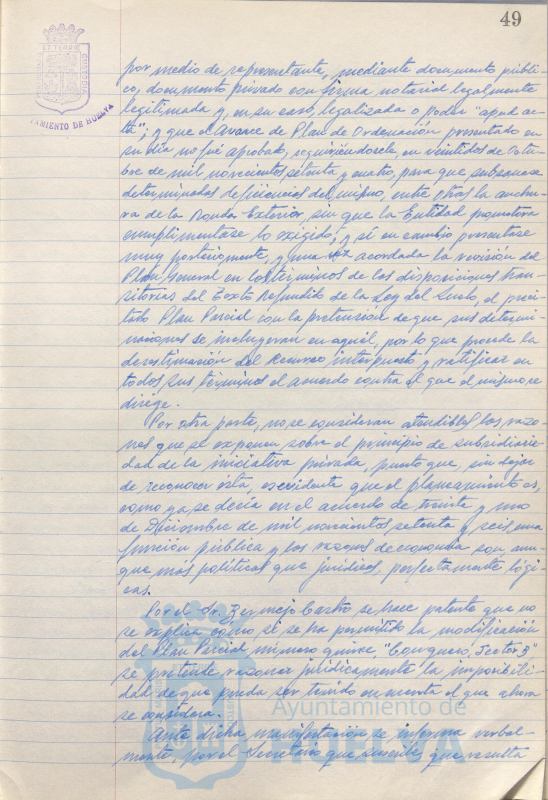 49
AYUNTAMIENTO DE HUELVA
por medio de representante, mediante documento públi-
co, documento privado con firma notarial legalmente
legitimada y, en su caso, legalizada o poder "apud ac-
ta"; y que el avance de Plan de Ordenación presentado en
su día no fué aprobado, requiriéndosele, en veintidos de Octu-
bre de mil novecientos setenta y cuatro, para que subsanase
determinadas deficiencias del mismo, entre otras la anchu-
ra de la Ronda Exterior, sin que la Entidad promotora
cumplimentase lo exigido, y sí en cambio presentase
muy posteriormente, y una vez acordada la revisión del
Plan General en los términos de las disposiciones tran-
sitorias del Texto Refundido de la Ley del Suelo, el preci-
tado Plan Parcial con la pretensión de que sus determi-
naciones se incluyeran en aquél, por lo que procede la
desestimación del Recurso interpuesto y ratificar en
todos sus términos el acuerdo contra el que el mismo se
dirige.
Por otra parte, no se consideran atendibles las razo-
nes que se exponen sobre el principio de subsidiarie-
dad de la iniciativa privada, puesto que, sin dejar
de reconocer ésta, es evidente que el planeamiento es,
como ya se decía en el acuerdo de treinta y uno
de Diciembre de mil novecientos setenta y seis, una
función pública y las razones de economía son, aun-
que más políticas que jurídicas, perfectamente lógi-
cas.
Por el Sr. Bermejo Castro se hace patente que no
se explica cómo si se ha permitido la modificación
del Plan Parcial número quince "Conquero, Sector B"
se pretende razonar jurídicamente la imposibili-
dad de que pueda ser tenido en cuenta el que ahora
se considera.
Ante dicha manifestación se informa verbal-
mente, por el Secretario que suscribe, que resulta
Ayuntamiento de
HUELVA